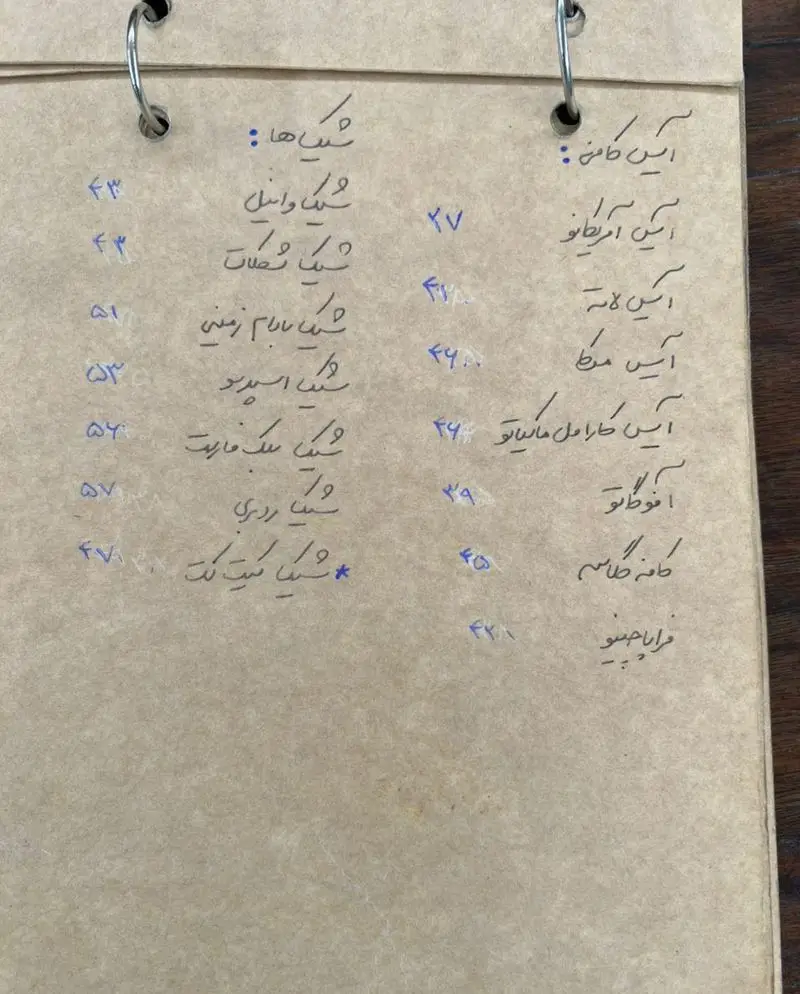 آیس کافی :
آیس آمریکانو ۲۷
آیس لاته ۴۱
آیس موکا ۴۶
آیس کارامل ماکیاتو ۴۶
آفوگاتو ۳۹
کافه گلاسه ۴۵
فراپاچینو ۴۲
شیک ها :
شیک وانیل ۴۳
شیک شکلات ۴۳
شیک بادام زمینی ۵۱
شیک اسپرسو ۵۳
شیک ۵۶
شیک ۵۷
* شیک کیت کت ۴۷